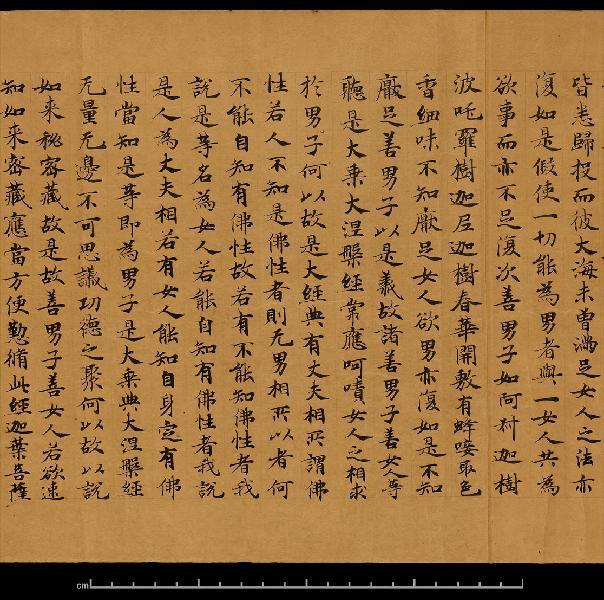 皆悉歸投而彼大海未曾滿足女人之法亦
復如是假使一切能為男者與一女人共為
欲事而亦不足復次善男子如阿村迦樹
波吒羅樹迦尼迦樹春華開敷有蜂唼取色
香細味不知厭足女人欲男亦復如是不知
厭足善男子以是義故諸善男子善女人等
聽是大乗大涅槃經常應呵嘖女人之相求
於男子何以故是大經典有丈夫相所謂佛
性若人不知是佛性者則无男相所以者何
不能自知有佛性故若有不能知佛性者我
說是等名為女人若能自知有佛性者我說
是人為丈夫相若有女人能知自身定有佛
性當知是等即為男子是大乗典大涅槃經
无量无邊不可思議功德之聚何以故以說
如来秘密藏故是故善男子善女人若欲速
知如来密藏應當方便懃脩此經迦葉菩薩
cm